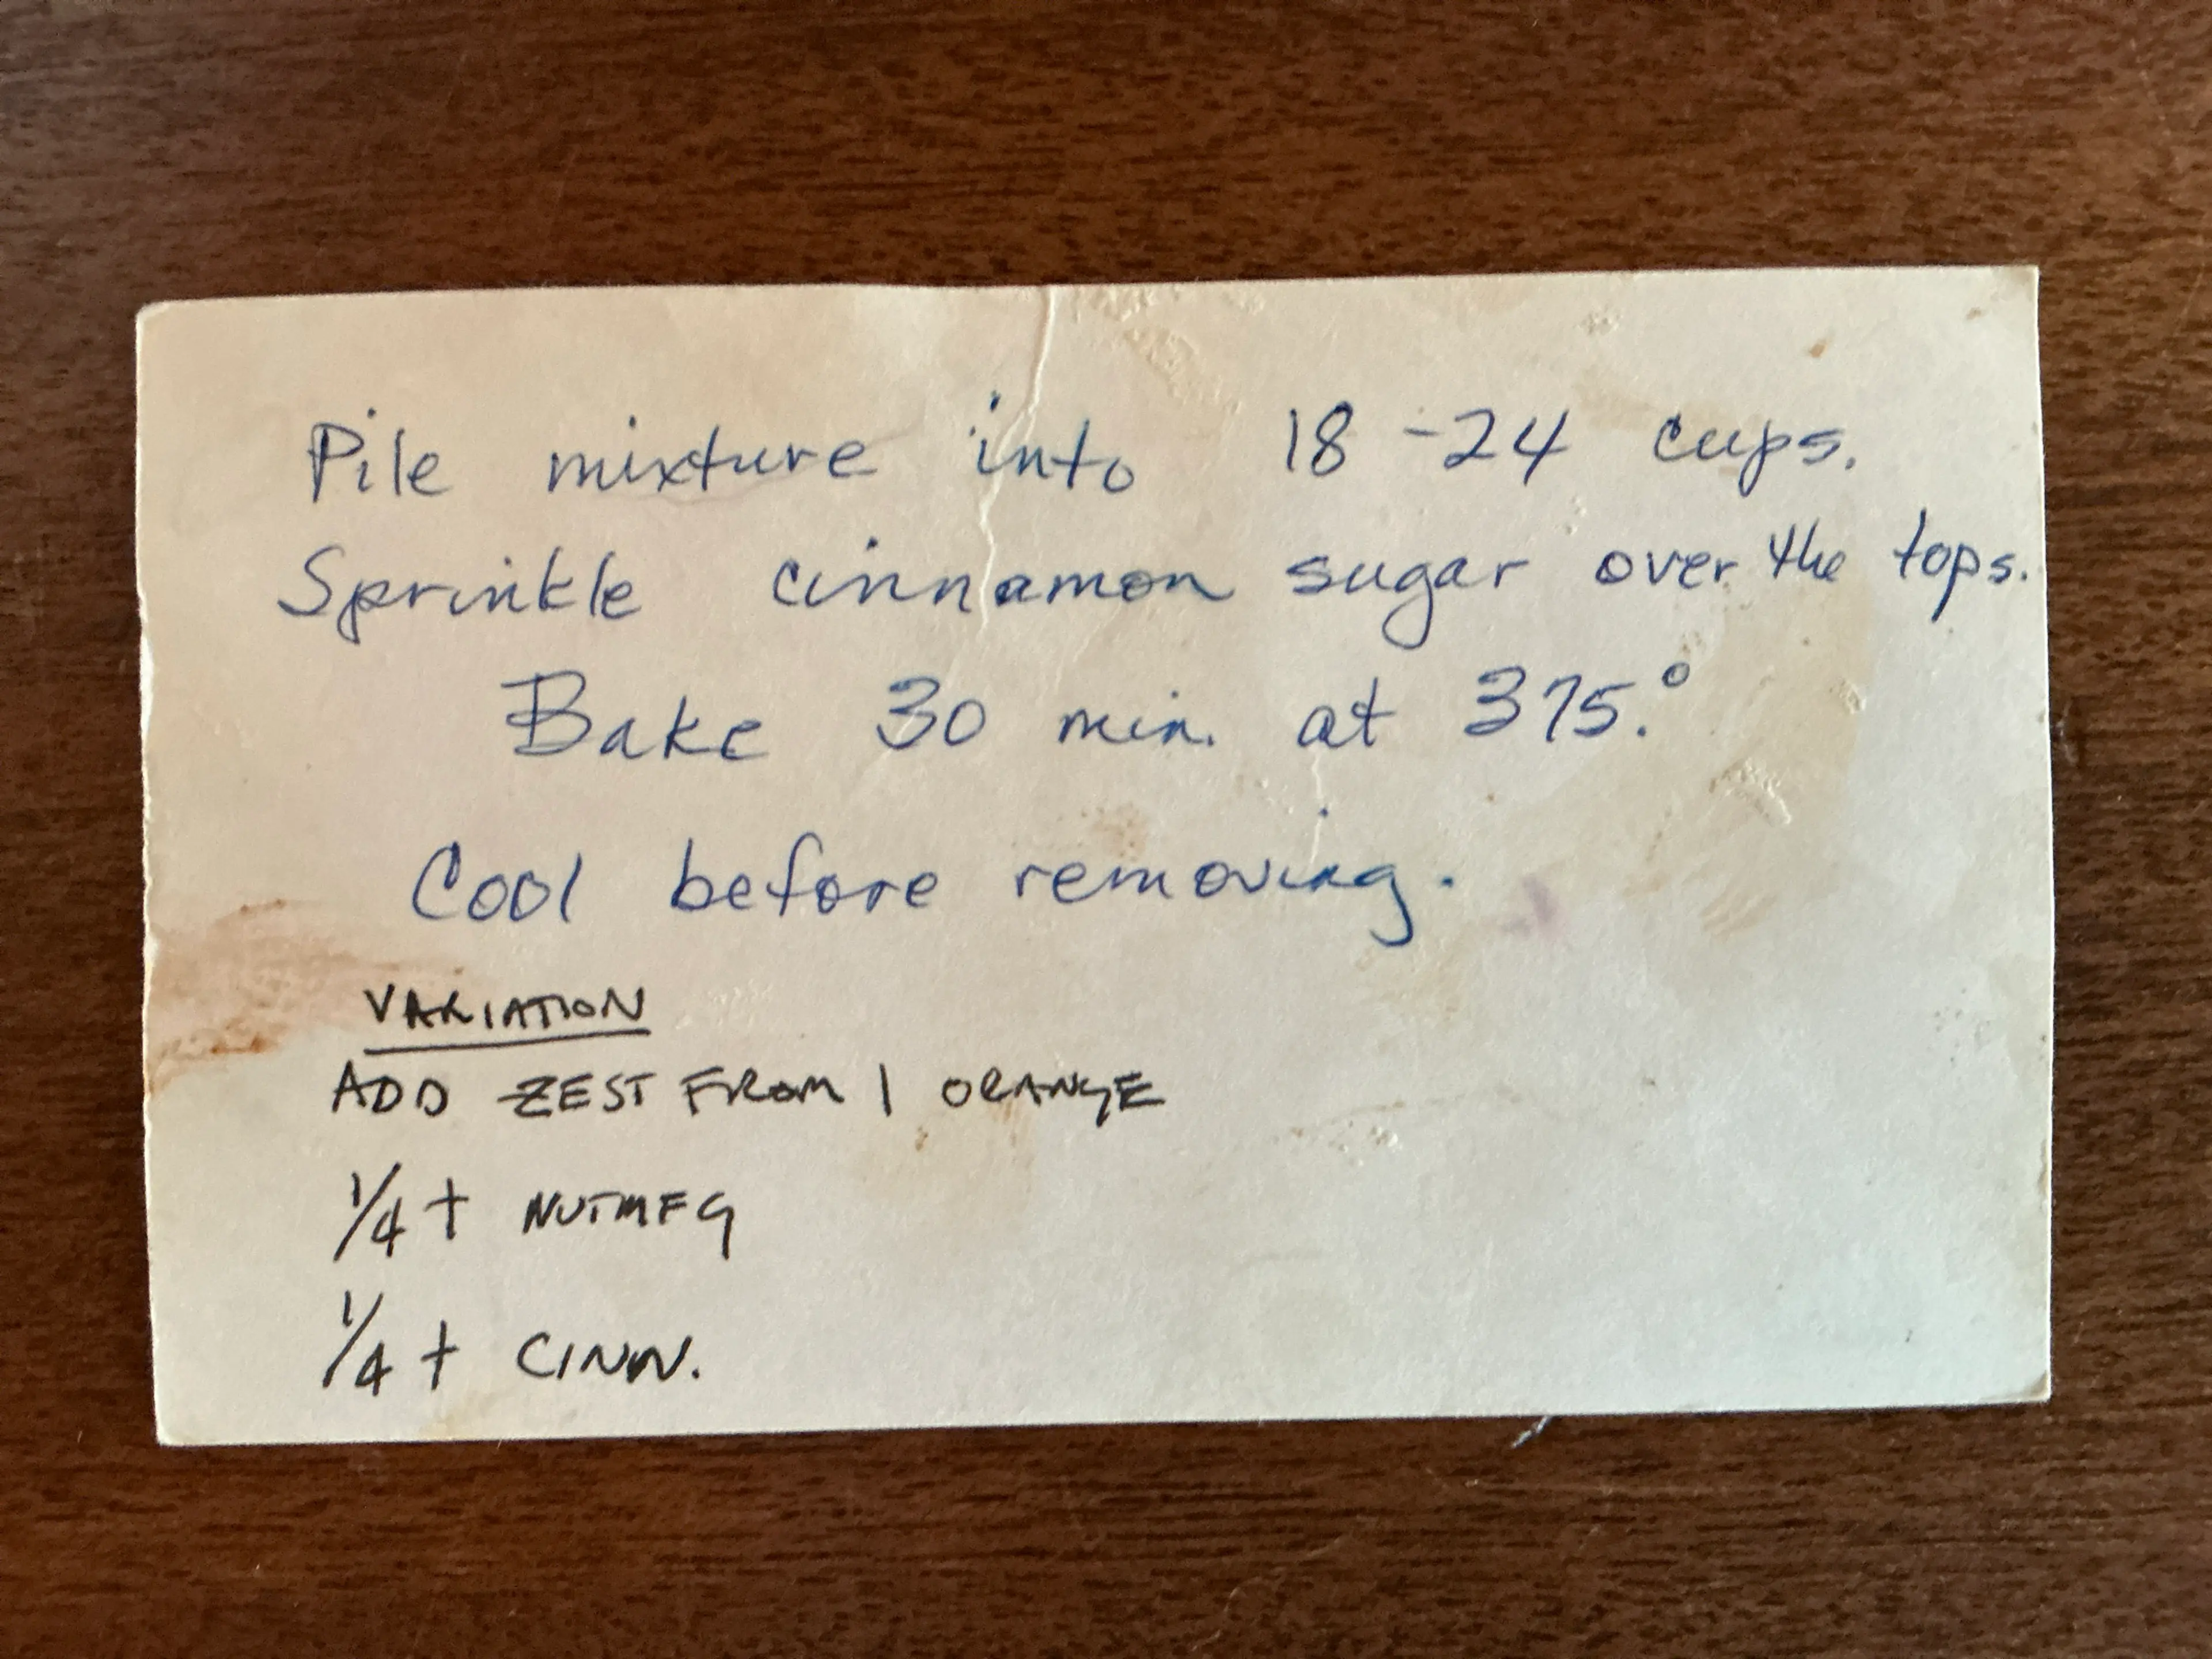 Pile mixture into 18-24 cups.
Sprinkle cinnamon sugar over the tops.
Bake 30 min. at 375.°
Cool before removing.
VARIATION
ADD ZEST FROM 1 ORANGE
1/4 t NUTMEG
1/4 t CINN.